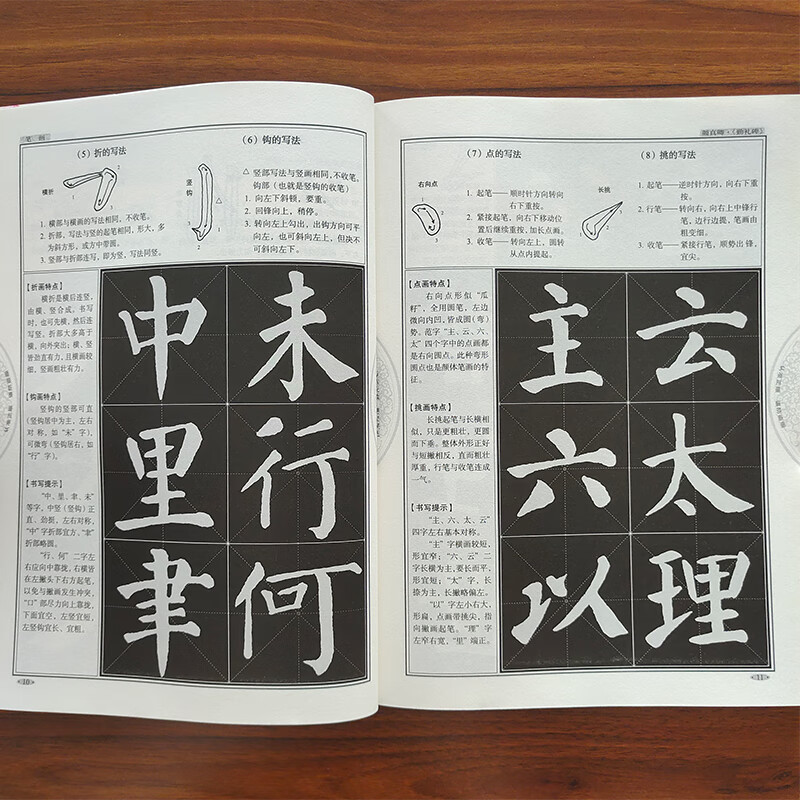 笔 画
（5）折的写法
横折
1. 横部与横画的写法相同，不收笔。
2. 折部，写法与竖的起笔相同，形大，多
为斜方形，或方中带圆。
3. 竖部与折部连写，即为竖，写法同竖。
（6）钩的写法
竖
钩
△ 竖部写法与竖画相同，不收笔。
钩部（也就是竖钩的收笔）
1. 向左下斜顿，要重。
2. 回锋向上，稍停。
3. 转向左上勾出，出钩方向可平
向左，也可斜向左上，但决不
可斜向左下。
【折画特点】
横折是横后连竖，
由横、竖合成。书写
时，也可先横，然后连
写竖。折部大多高于
横，向外突出；横、竖
皆劲直有力，且横画较
细，竖画粗壮有力。
【钩画特点】
竖钩的竖部可直
（竖钩居中为主，左右
对称，如“未”字），
可微弯（竖钩居右，如
“行”字）。
【书写提示】
“中、里、聿、未”
等字，中竖（竖钩）正
直、劲挺，左右对称。
“中”字折部宜方，“聿”
折部略圆。
“行、何”二字左
右应向中靠拢，右横皆
在左撇头下右方起笔，
以免与撇画发生冲突，
“口”部尽力向上靠拢，
下面宜空，左竖宜短，
左竖钩宜长、宜粗。
中 未
里 行
聿 何
10
颜真卿·《勤礼碑》
（7）点的写法
右向点
1. 起笔—— 顺时针方向转向
右下重按。
2. 紧接起笔，向右下移动位
置后继续重按、加长点画。
3. 收笔—— 转向左上，圆转
从点内提起。
（8）挑的写法
长挑
1. 起笔—— 逆时针方向，向右下重
按。
2. 行笔—— 转向右，向右上中锋行
笔，边行边提，笔画由
粗变细。
3. 收笔—— 紧接行笔，顺势出锋，
宜尖。
【点画特点】
右向点形似“瓜
籽”，全用圆笔，左边
微向内凹，皆成圆（弯）
势。范字“主、云、六、
太”四个字中的点画都
是右向圆点。此种弯形
圆点也是颜体笔画的特
征。
【挑画特点】
长挑起笔与长横相
似，只是更粗壮，更圆
而下垂。整体外形正好
与短撇相反，直而粗壮
厚重，行笔与收笔连成
一气。
【书写提示】
“主、六、太、云”
四字左右基本对称。
“主”字横画较短，
形宜窄；“六、云”二
字长横为主，要长而平，
形宜短；“太”字，长
捺为主，长撇略偏左。
“以”字左小右大，
形扁，点画带挑尖，指
向撇画起笔。“理”字
左窄右宽，“里”端正。
主 云
六 太
以 理
11